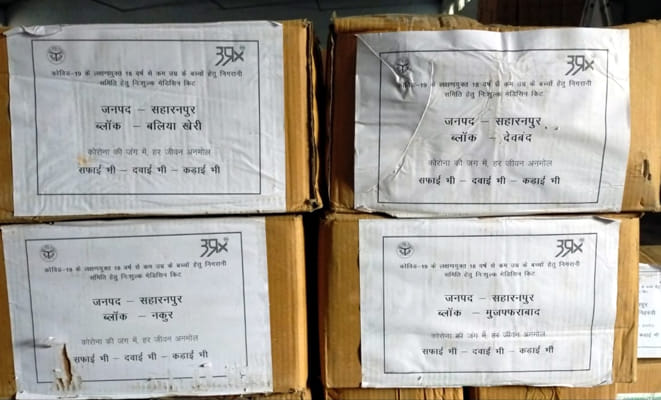 कोविड-19 के लक्षणयुक्त 18 वर्ष से कम उम्र के बच्चों हेतु निगरानी
समिति हेतु निःशुल्क मेडिसिन किट
जनपद – सहारनपुर
ब्लॉक – बलिया खेरी
कोरोना की जंग में, हर जीवन अनमोल
सफाई भी – दवाई भी – कड़ाई भी
कोविड-19 के लक्षणयुक्त 18 वर्ष से कम उम्र के बच्चों हेतु निगरानी
समिति हेतु निःशुल्क मेडिसिन किट
जनपद – सहारनपुर
ब्लॉक – देवबंद
कोरोना की जंग में, हर जीवन अनमोल
सफाई भी – दवाई भी – कड़ाई भी
कोविड-19 के लक्षणयुक्त 18 वर्ष से कम उम्र के बच्चों हेतु निगरानी
समिति हेतु निःशुल्क मेडिसिन किट
जनपद – सहारनपुर
ब्लॉक – नकुर
कोरोना की जंग में, हर जीवन अनमोल
सफाई भी – दवाई भी – कड़ाई भी
कोविड-19 के लक्षणयुक्त 18 वर्ष से कम उम्र के बच्चों हेतु निगरानी
समिति हेतु निःशुल्क मेडिसिन किट
जनपद – सहारनपुर
ब्लॉक – मुजफ्फराबाद
कोरोना की जंग में, हर जीवन अनमोल
सफाई भी – दवाई भी – कड़ाई भी